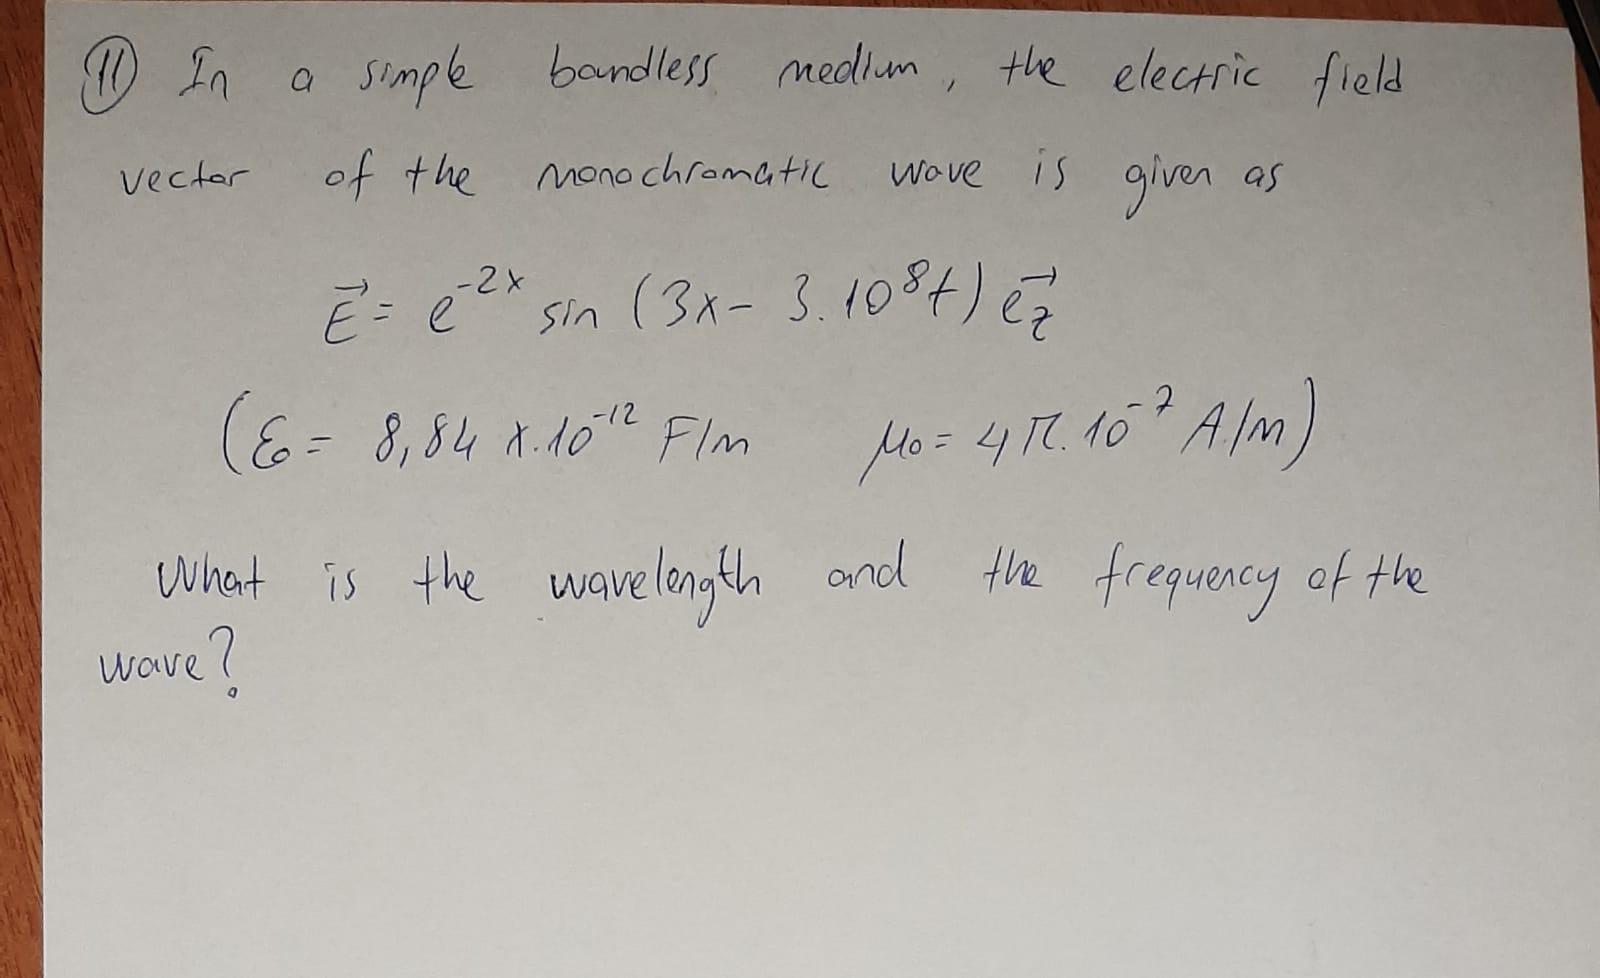 (11) In a simple boundless medium, the electric field
vector of the monochromatic wave is given as
E⃗ = e^{-2x} sin (3x - 3.10^8 t) e⃗_z
(ε₀ = 8,84 x.10^{-12} F/m μ₀ = 4π.10^{-7} A/m)
What is the wavelength and the frequency of the
wave?